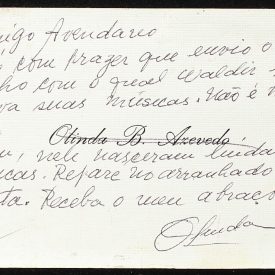 igo Avendano
com prazer que envio o
ho com o qual Waldir
va suas músicas. Não é
Olinda B. Azevedo
, nele nasceram linda
cas. Repare no arranhado
ta. Receba o meu abraço
Olinda